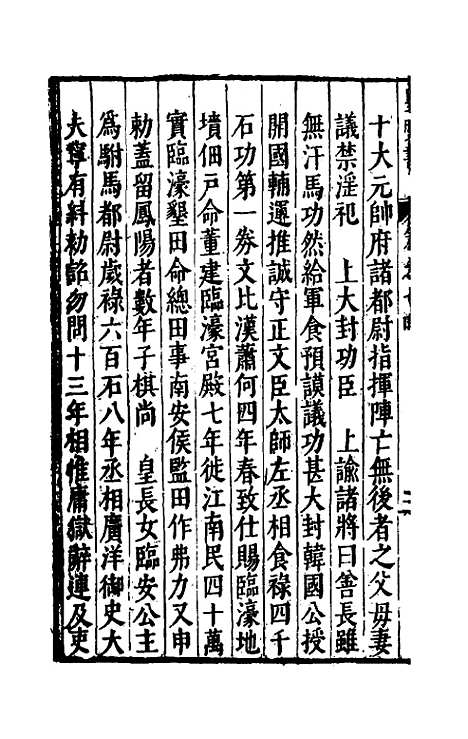 十大元帥府諸都尉指揮陣亡無後者之父母妻
議禁淫祀　上大封功臣　上諭諸將曰善長雖
無汗馬功然給軍食預謨議功甚大封韓國公授
開國輔運推誠守正文臣太師左丞相食祿四千
石功第一券文比漢蕭何四年春致仕賜臨濠地
墳佃戶命董建臨濠宮殿七年徙江南民四十萬
實臨濠墾田命總田事南安侯監田作弗力又申
勑蓋留鳳陽者數年子棋尚　皇長女臨安公主
爲駙馬都尉歲祿六百石八年丞相廣洋御史大
夫寧有糾勑詺勿問十三年相惟庸獄辭連及吏